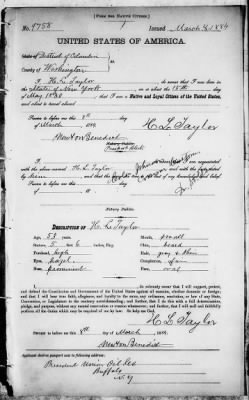 [FORM FOR NATIVE CITIZEN.]
No. 4758
Issued March 8, 1884
UNITED STATES OF AMERICA.
State of District of Columbia
County of Washington
I, H. L. Taylor do swear that I was born in the
State of New York on or about the 15th day
of May 1830 that I am a Native and Loyal Citizen of the United States,
and about to travel abroad
Sworn to before me this 8th day
of March 1884
Newton Benedict
Notary Public
H. L. Taylor
with the above-named H. L. Taylor
Sworn to before me this
of 18
Notary Public.
DESCRIPTION OF H. L. Taylor
Age, 53 years
Mouth, small
Stature, 5 feet 6 inches, Eng.
Chin, beard
Forehead, high
Hair,
Eyes, hazel
Complexion, fair
Nose, prominent
Face, oval
I, do solemnly swear that I will support, protect,
and defend the Constitution and Government of the United States against all enemies, whether domestic or foreign;
and that I will bear true faith, allegiance, and loyalty to the same, any ordinance, resolution, or law of any State,
Convention, or Legislature to the contrary notwithstanding; and further, that I do this with a full determination,
pledge, and purpose, without any mental reservation or evasion whatsoever; and further, that I will well and faithfully
perform all the duties which may be required of me by law: So help me God.
H. L. Taylor
Sworn to before me this 8th day of March 1884
Newton Benedict
Applicant desires passport sent to following address:
President Union Oil Co
Buffalo
N. Y.